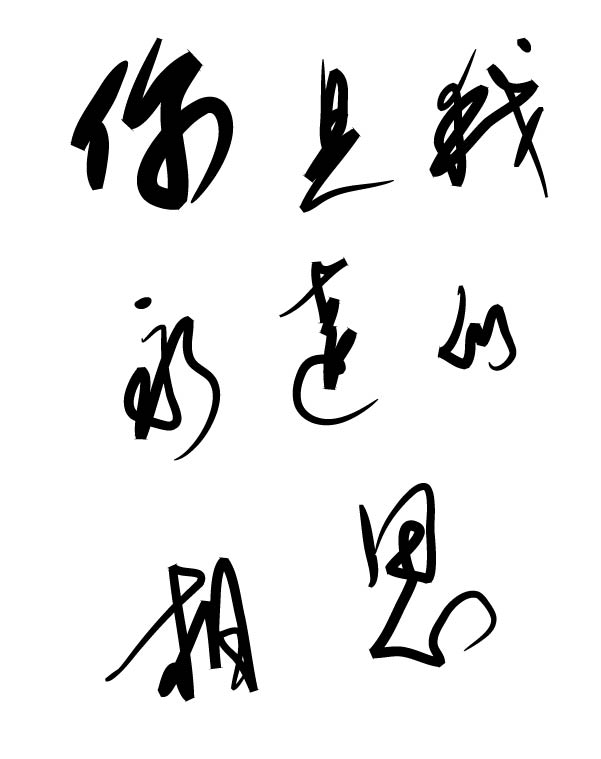 你是我
永远的
相思